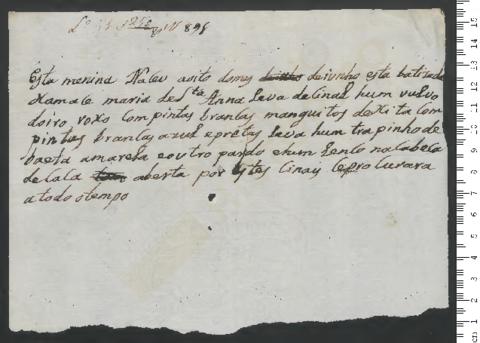 Esta menina Naceu aoito domes de junho esta batizada
chamace maria de Sta Anna Leva de Sinal hum vistido
doiro roxo Com pintas brancas manguitos de Xita Com
pintas brancas azues epretas Leva hum trapinho de
baeta amarela eoutro pardo ehum Lenco na Cabeca
de Caca aberta por estes Sinais Ceprocurara
atodo otempo